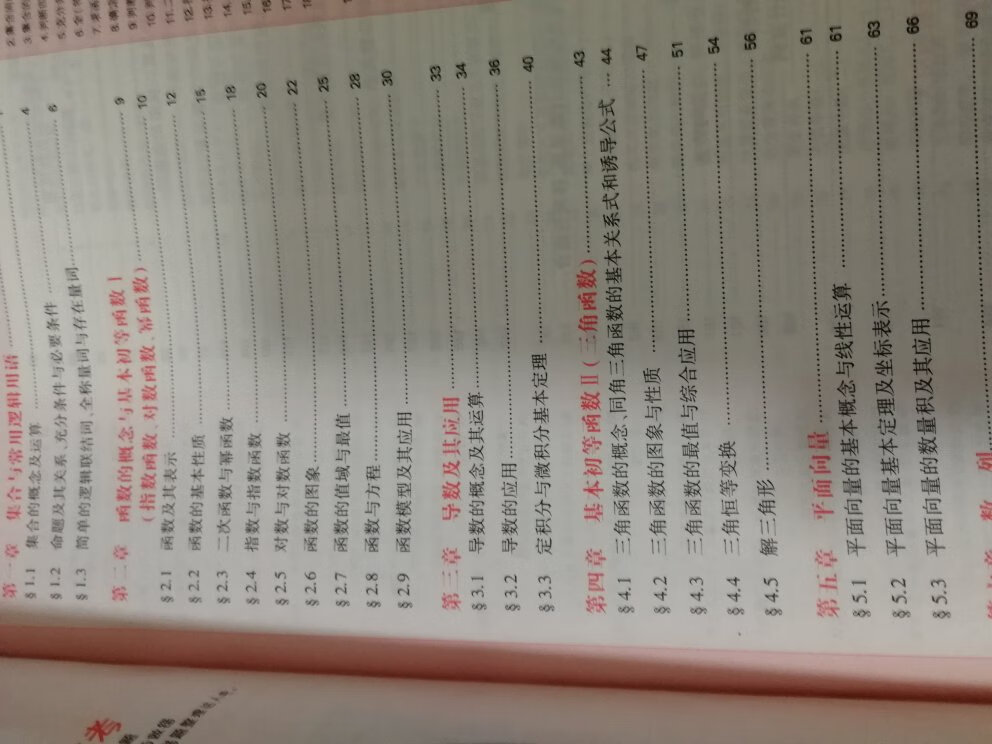 第一章 集合与常用逻辑用语
§1.1 集合的概念及运算 4
§1.2 命题及其关系、充分条件与必要条件 6
§1.3 简单的逻辑联结词、全称量词与存在量词
第二章 函数的概念与基本初等函数Ⅰ
(指数函数、对数函数、幂函数) 9
§2.1 函数及其表示 10
§2.2 函数的基本性质 12
§2.3 二次函数与幂函数 15
§2.4 指数与指数函数 18
§2.5 对数与对数函数 20
§2.6 函数的图象 22
§2.7 函数的值域与最值 25
§2.8 函数与方程 28
§2.9 函数模型及其应用 30
第三章 导数及其应用 33
§3.1 导数的概念及其运算 34
§3.2 导数的应用 36
§3.3 定积分与微积分基本定理 40
第四章 基本初等函数Ⅱ(三角函数) 43
§4.1 三角函数的概念、同角三角函数的基本关系式和诱导公式 44
§4.2 三角函数的图象与性质 47
§4.3 三角函数的最值与综合应用 51
§4.4 三角恒等变换 54
§4.5 解三角形 56
第五章 平面向量 61
§5.1 平面向量的基本概念与线性运算 61
§5.2 平面向量基本定理及坐标表示 63
§5.3 平面向量的数量积及其应用 66
数 列 69
考